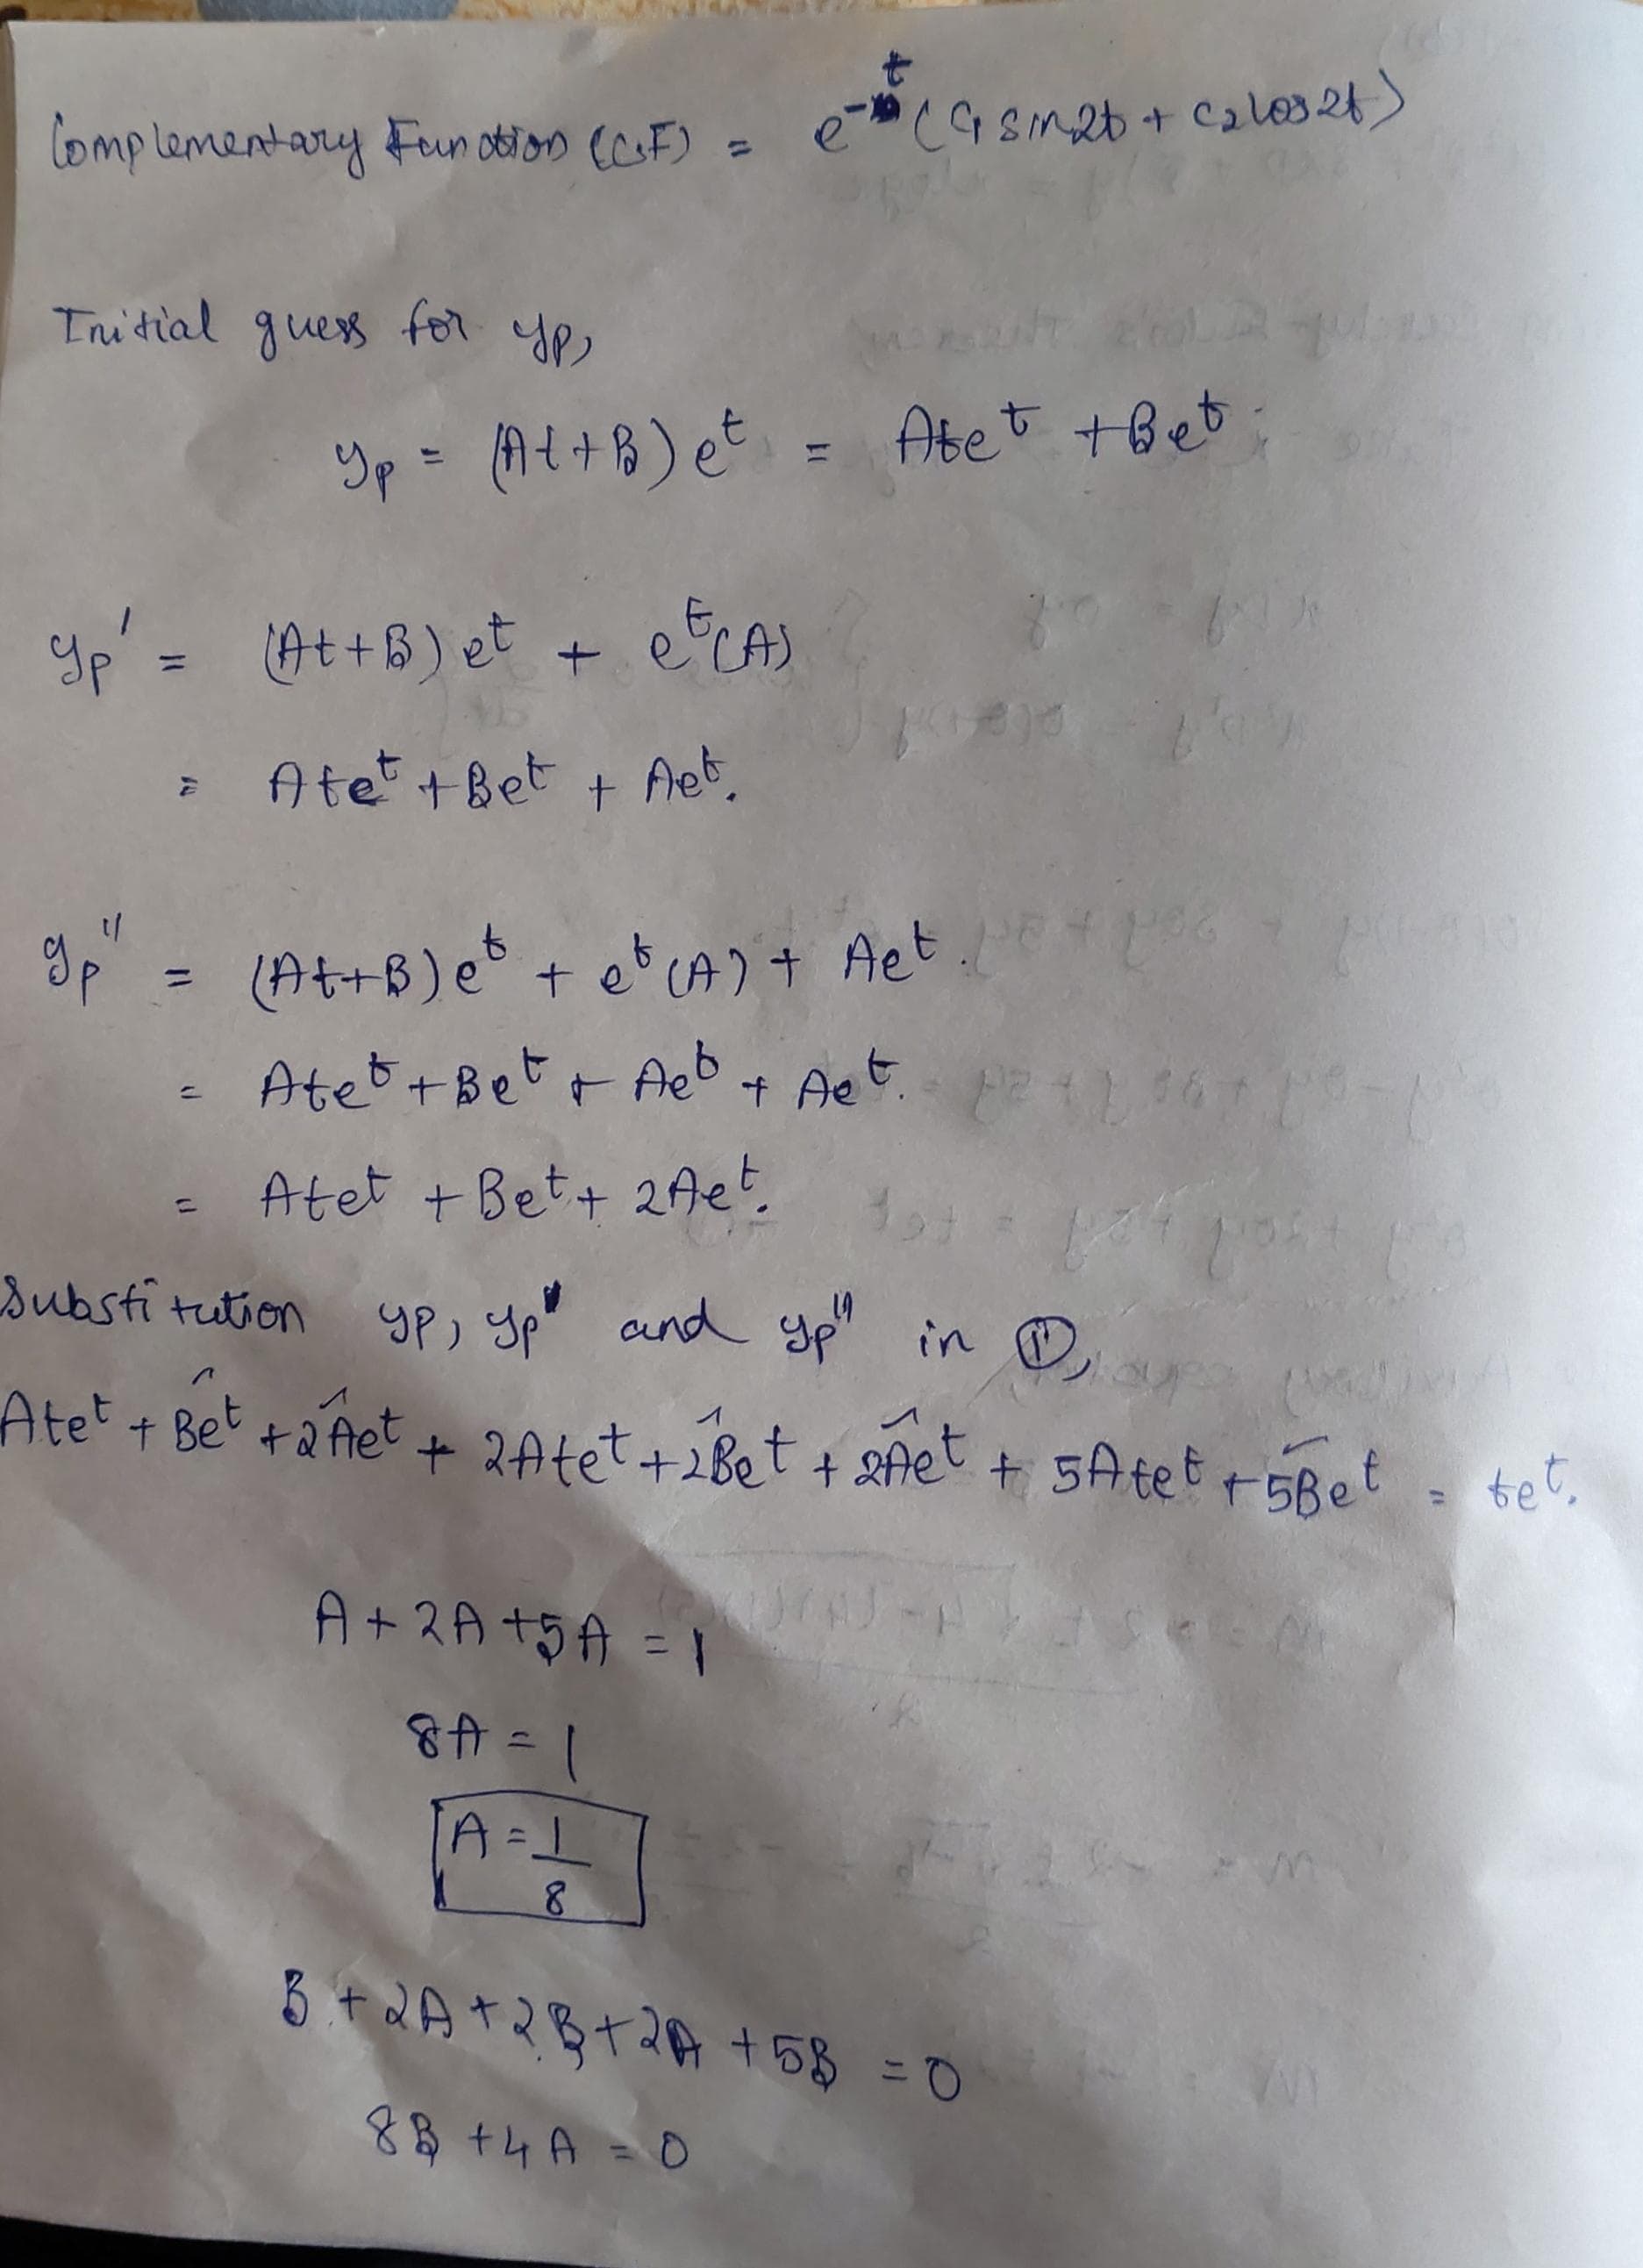 Complementary Function (C.F) = e^-t (C1 sin2t + C2 cos2t)
Initial guess for yp,
yp = (At+B) e^t = Ate^t + Be^t.
yp' = (At+B) e^t + e^t(A)
= Ate^t + Be^t + Ae^t.
yp'' = (At+B) e^t + e^t (A) + Ae^t.
= Ate^t + Be^t + Ae^t + Ae^t.
= Ate^t + Be^t + 2Ae^t.
Substitution yp, yp' and yp'' in ①,
Ate^t + Be^t + 2Ae^t + 2Ate^t + 2Be^t + 2Ae^t + 5Ate^t + 5Be^t = te^t.
A + 2A + 5A = 1
8A = 1
A = 1/8
B + 2A + 2B + 2A + 5B = 0
8B + 4A = 0